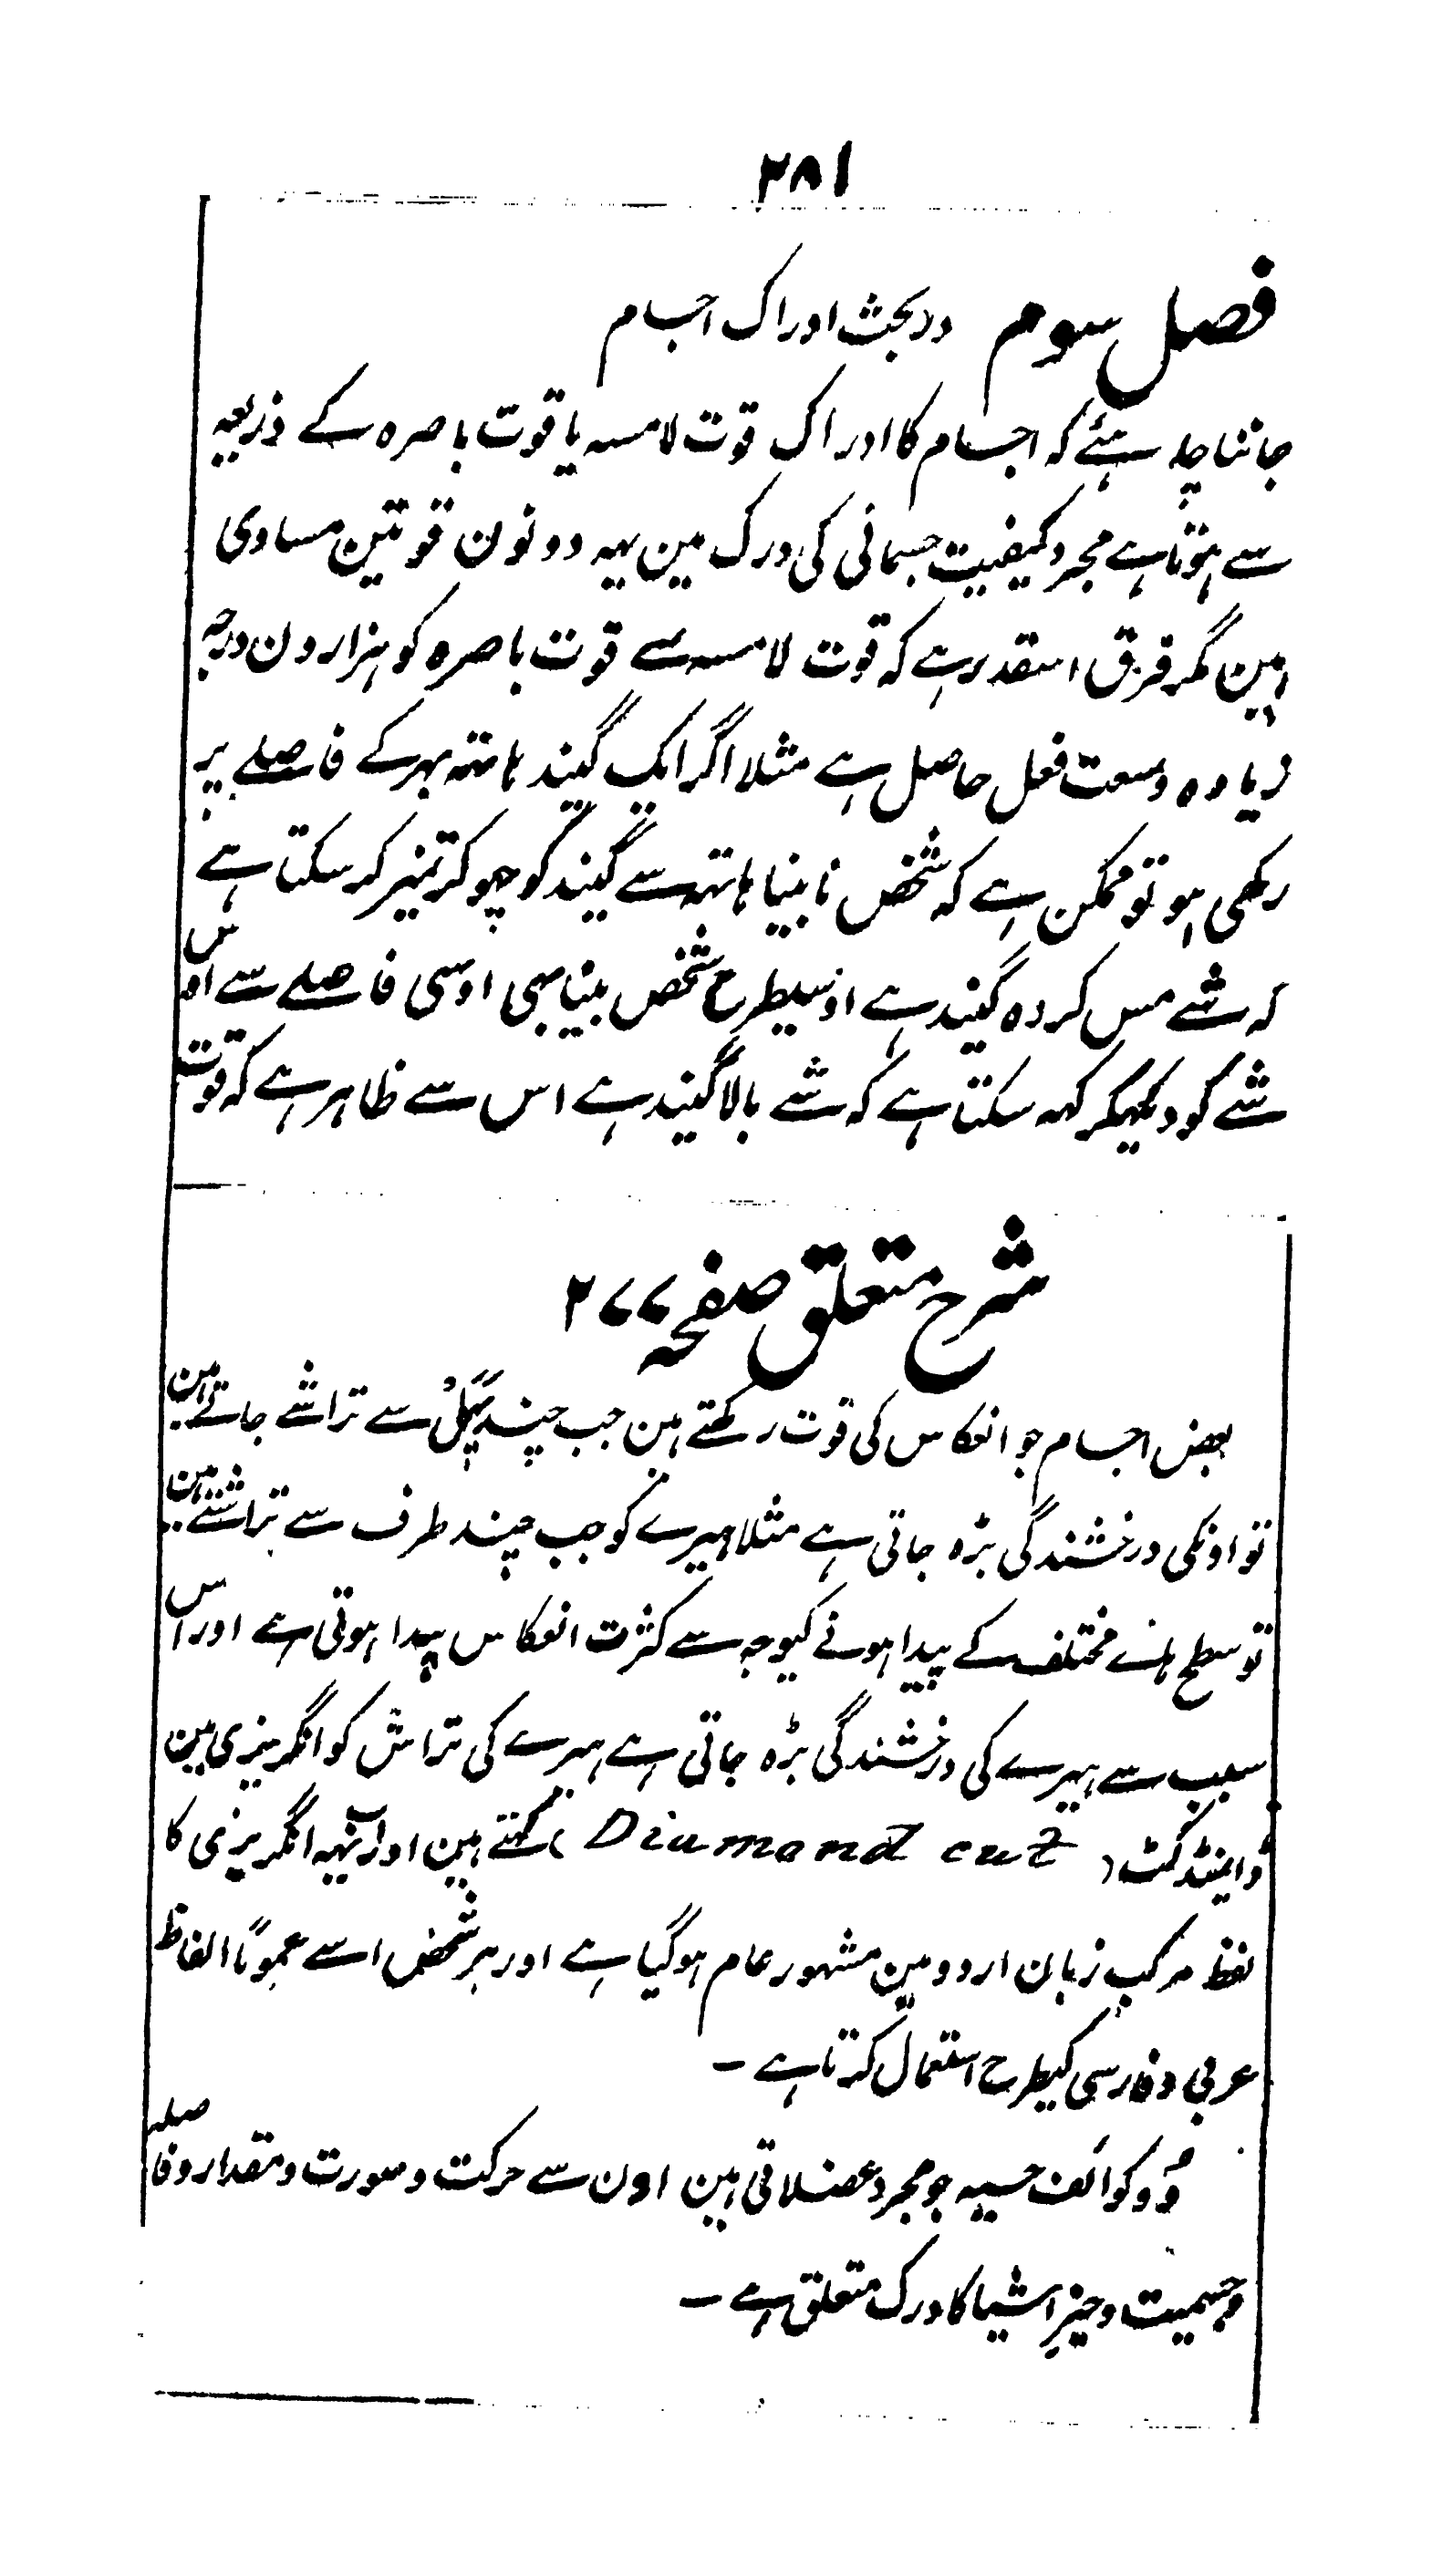 ۲۸۱
فصل سوم در بحث ادراک اجسام
جاننا چاہئے کہ اجسام کا ادراک قوت لامسہ یا قوت باصرہ کے ذریعہ
سے ہوتا ہے مجرد کیفیت جسمانی کی درک مین یہہ دونون قوتین مساوی
ہین مگر فرق اسقدر ہے کہ قوت لامسہ سے قوت باصرہ کو ہزارون درجہ
زیادہ وسعت فعل حاصل ہے مثلا اگر ایک گیند ہاتہہ بہر کے فاصلے پر
رکھی ہو تو ممکن ہے کہ شخص نابینا ہاتہہ سے گیند کو چھو کر تمیز کر سکتا ہے
کہ شے مس کردہ گیند ہے اوسیطرح شخص بینا بہی اوسی فاصلے سے اوس
شے کو دیکہکر کہہ سکتا ہے کہ شے بالا گیند ہے اس سے ظاہر ہے کہ قوت
شرح متعلق صفحہ ۲۷۷
بعض اجسام جو انعکاس کی قوت رکھتے ہین جب چند پہَلُ سے تراشے جاتے ہین
تو اونکی درخشندگی بڑہ جاتی ہے مثلا ہیرے کو جب چند طرف سے تراشتے ہین
تو سطح ہائے مختلف کے پیدا ہونے کیوجہ سے کثرت انعکاس پیدا ہوتی ہے اور اس
سبب سے ہیرے کی درخشندگی بڑہ جاتی ہے ہیرے کی تراش کو انگریزی مین
ڈایمنڈ کٹ (Diamond cut) کہتے ہین اور اب یہہ انگریزی کا
لفظ مرکب زبان اردو مین مشہور عام ہو گیا ہے اور ہر شخص اسے عموماً الفاظ
عربی و فارسی کیطرح استعمال کرتا ہے ۔
وُہ کوائف حسیہ جو مجرد عضلاتی ہین اون سے حرکت و صورت و مقدار و فاصلہ
و جسمیت و حیزِ اشیا کا درک متعلق ہے ۔